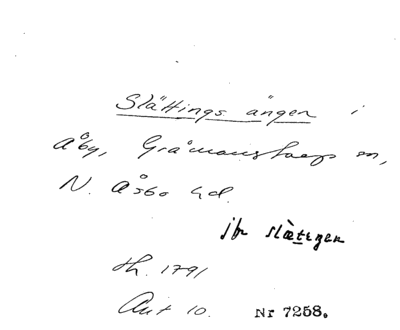 Slättings ängen i
Åby, Gråmanstorps sn,
N. Åsbo hd.
jfr slætengen
th. 1791
Akt 10. Nr 7258.